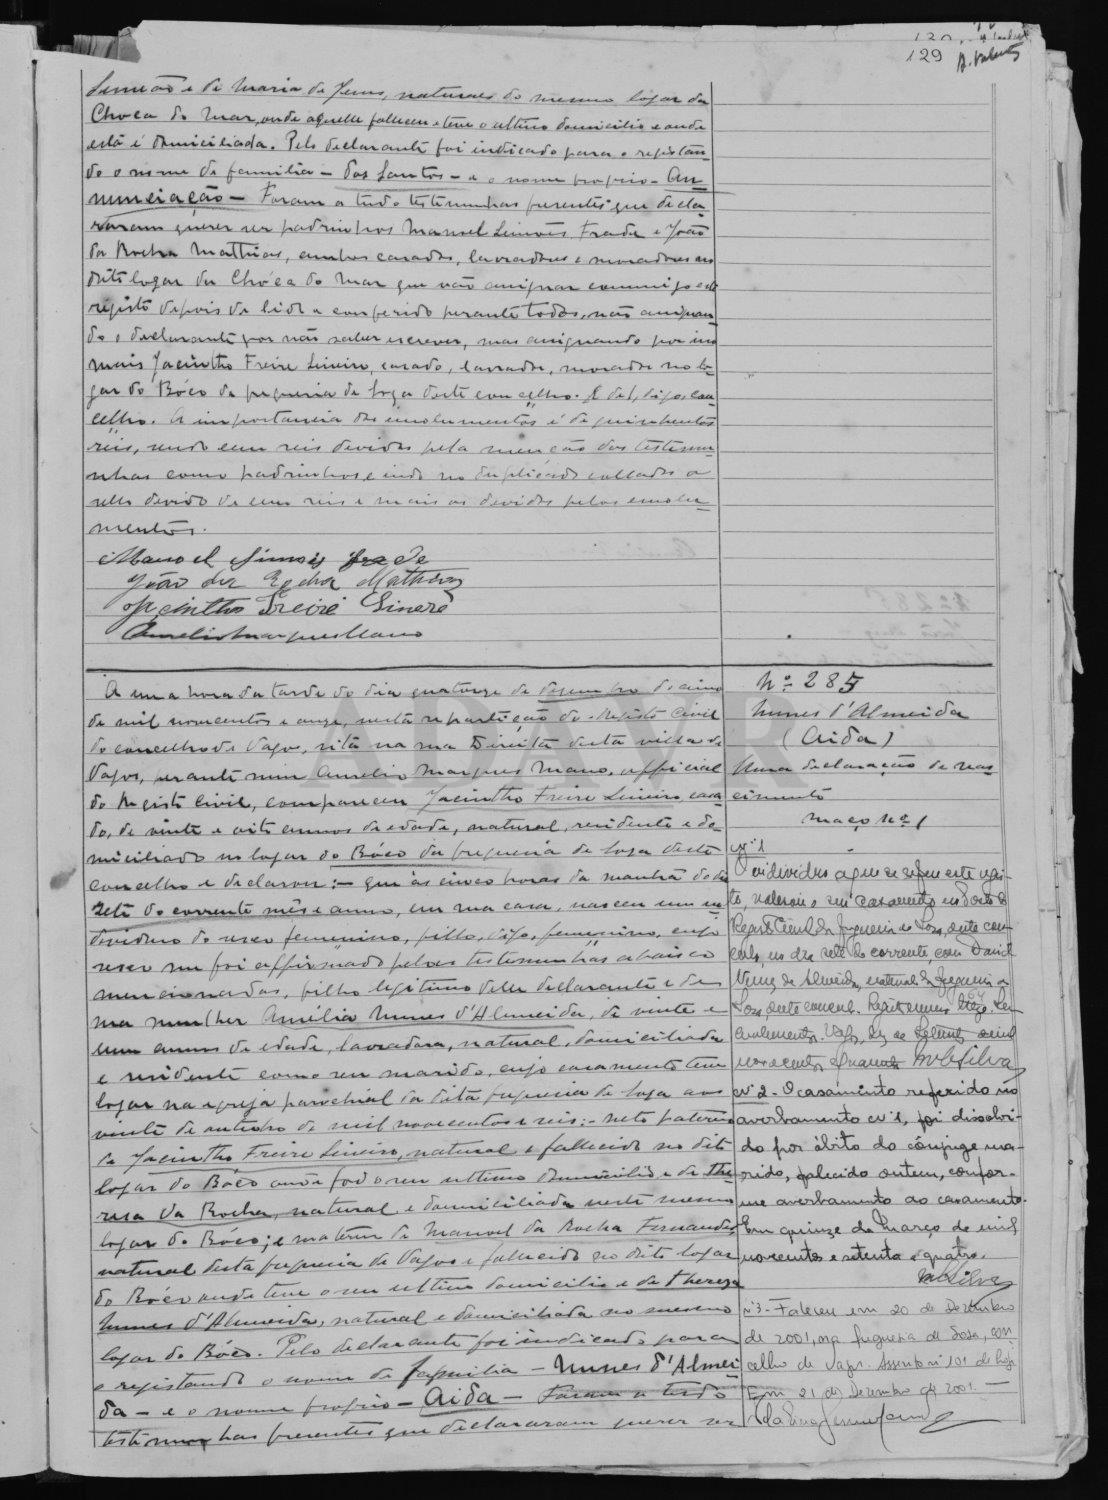 129
Simeão e de Maria de Jesus, naturaes do mesmo logar da
Chóca do Mar, onde aquelle falleceu e teve o ultimo domicilio e onde
esta é domiciliada. Pelo declarante foi indicado para o registan-
do o nome de familia - dos Santos - e o nome proprio - An-
nunciação - Foram a tudo testemunhas presentes que decla-
raram querer ser padrinhos Manoel Simões Frade e João
da Rocha Mathias, ambos casados, lavradores e moradores no
dito logar da Chóca do Mar que vão assignar commigo este
registo depois de lido e conferido perante todos, não assignan-
do o declarante por não saber escrever, mas assignando por isso
mais Jacintho Freire Sineiro, casado, lavrador, morador no lo-
gar do Bóco da freguezia de Soza deste concelho. digo, con-
celho. A importancia dos emolumentos é de quinhentos
réis, sendo cem reis devidos pela menção das testemu-
nhas como padrinhos e indo no duplicado collados o
sello devido de cem reis e mais os devidos pelos emolu-
mentos.
Manoel Simões Frade
João da Rocha Mathias
Jacintho Freire Sinero
Aurelio Marques Mano
A uma hora da tarde do dia quatorze de dezembro do anno
de mil novecentos e onze, nesta repartição do Registo Civil
do concelho de Vagos, sita na rua Direita desta villa de
Vagos, perante mim Aurelio Marques Mano, official
do Registo Civil, compareceu Jacintho Freire Sineiro, casa-
do, de vinte e oito annos de edade, natural, residente e do-
miciliado no logar do Bóco da freguezia de Soza deste
concelho e declarou: - que ás cinco horas da manhã do dia
sete do corrente mês e anno, em sua casa, nasceu um in-
dividuo do sexo femenino, filho, digo, femenino, cujo
sexo me foi affirmado pelas testemunhas abaixo
mencionadas, filho legitimo delle declarante e de
sua mulher Amélia Nunes d'Almeida, de vinte e
um annos de edade, lavradora, natural, domiciliada
e residente como seu marido, cujo casamento teve
logar na egreja parochial da dita freguezia de Soza aos
vinte de outubro de mil novecentos e seis: - neto paterno
de Jacintho Freire Sineiro, natural e fallecido no dito
logar do Bóco onde foi o seu ultimo domicilio e de The-
reza da Rocha, natural e domiciliada neste mesmo
logar do Bóco; e materno de Manoel da Rocha Fernandes,
natural desta freguezia de Vagos e fallecido no dito logar
do Bóco onde teve o seu ultimo domicilio e de Thereza
Nunes d'Almeida, natural e domiciliada no mesmo
logar do Bóco. Pelo declarante foi indicado para
o registando o nome de familia - Nunes d'Almei-
da - e o nome proprio - Aida - Foram a tudo
testemunhas presentes que declararam querer ser
Nº 285
Nunes d'Almeida
(Aida)
Uma declaração de nas-
cimento
maço nº 1
nº 1
O individuo a que se refere este regis-
to, celebrou o seu casamento no Posto do
Registo Civil da freguesia de Soza, deste con-
celho, no dia sete do corrente, com David
Nunes de Almeida, natural da freguesia de
Soza, deste concelho.
Vagos, de mil
novecentos e quarenta MCSilva
nº 2 - O casamento referido no
averbamento nº 1, foi dissolvi-
do por óbito do cônjuge ma-
rido, falecido ontem, confor-
me averbamento ao casamento.
Em quinze de Março de mil
novecentos e setenta e quatro.
MCSilva
nº 3 - Faleceu em 20 de Dezembro
de 2001, na freguesia de Sosa, con-
celho de Vagos. Assento nº 101 de hoje
Em 21 de Dezembro de 2001. -
ADAVR